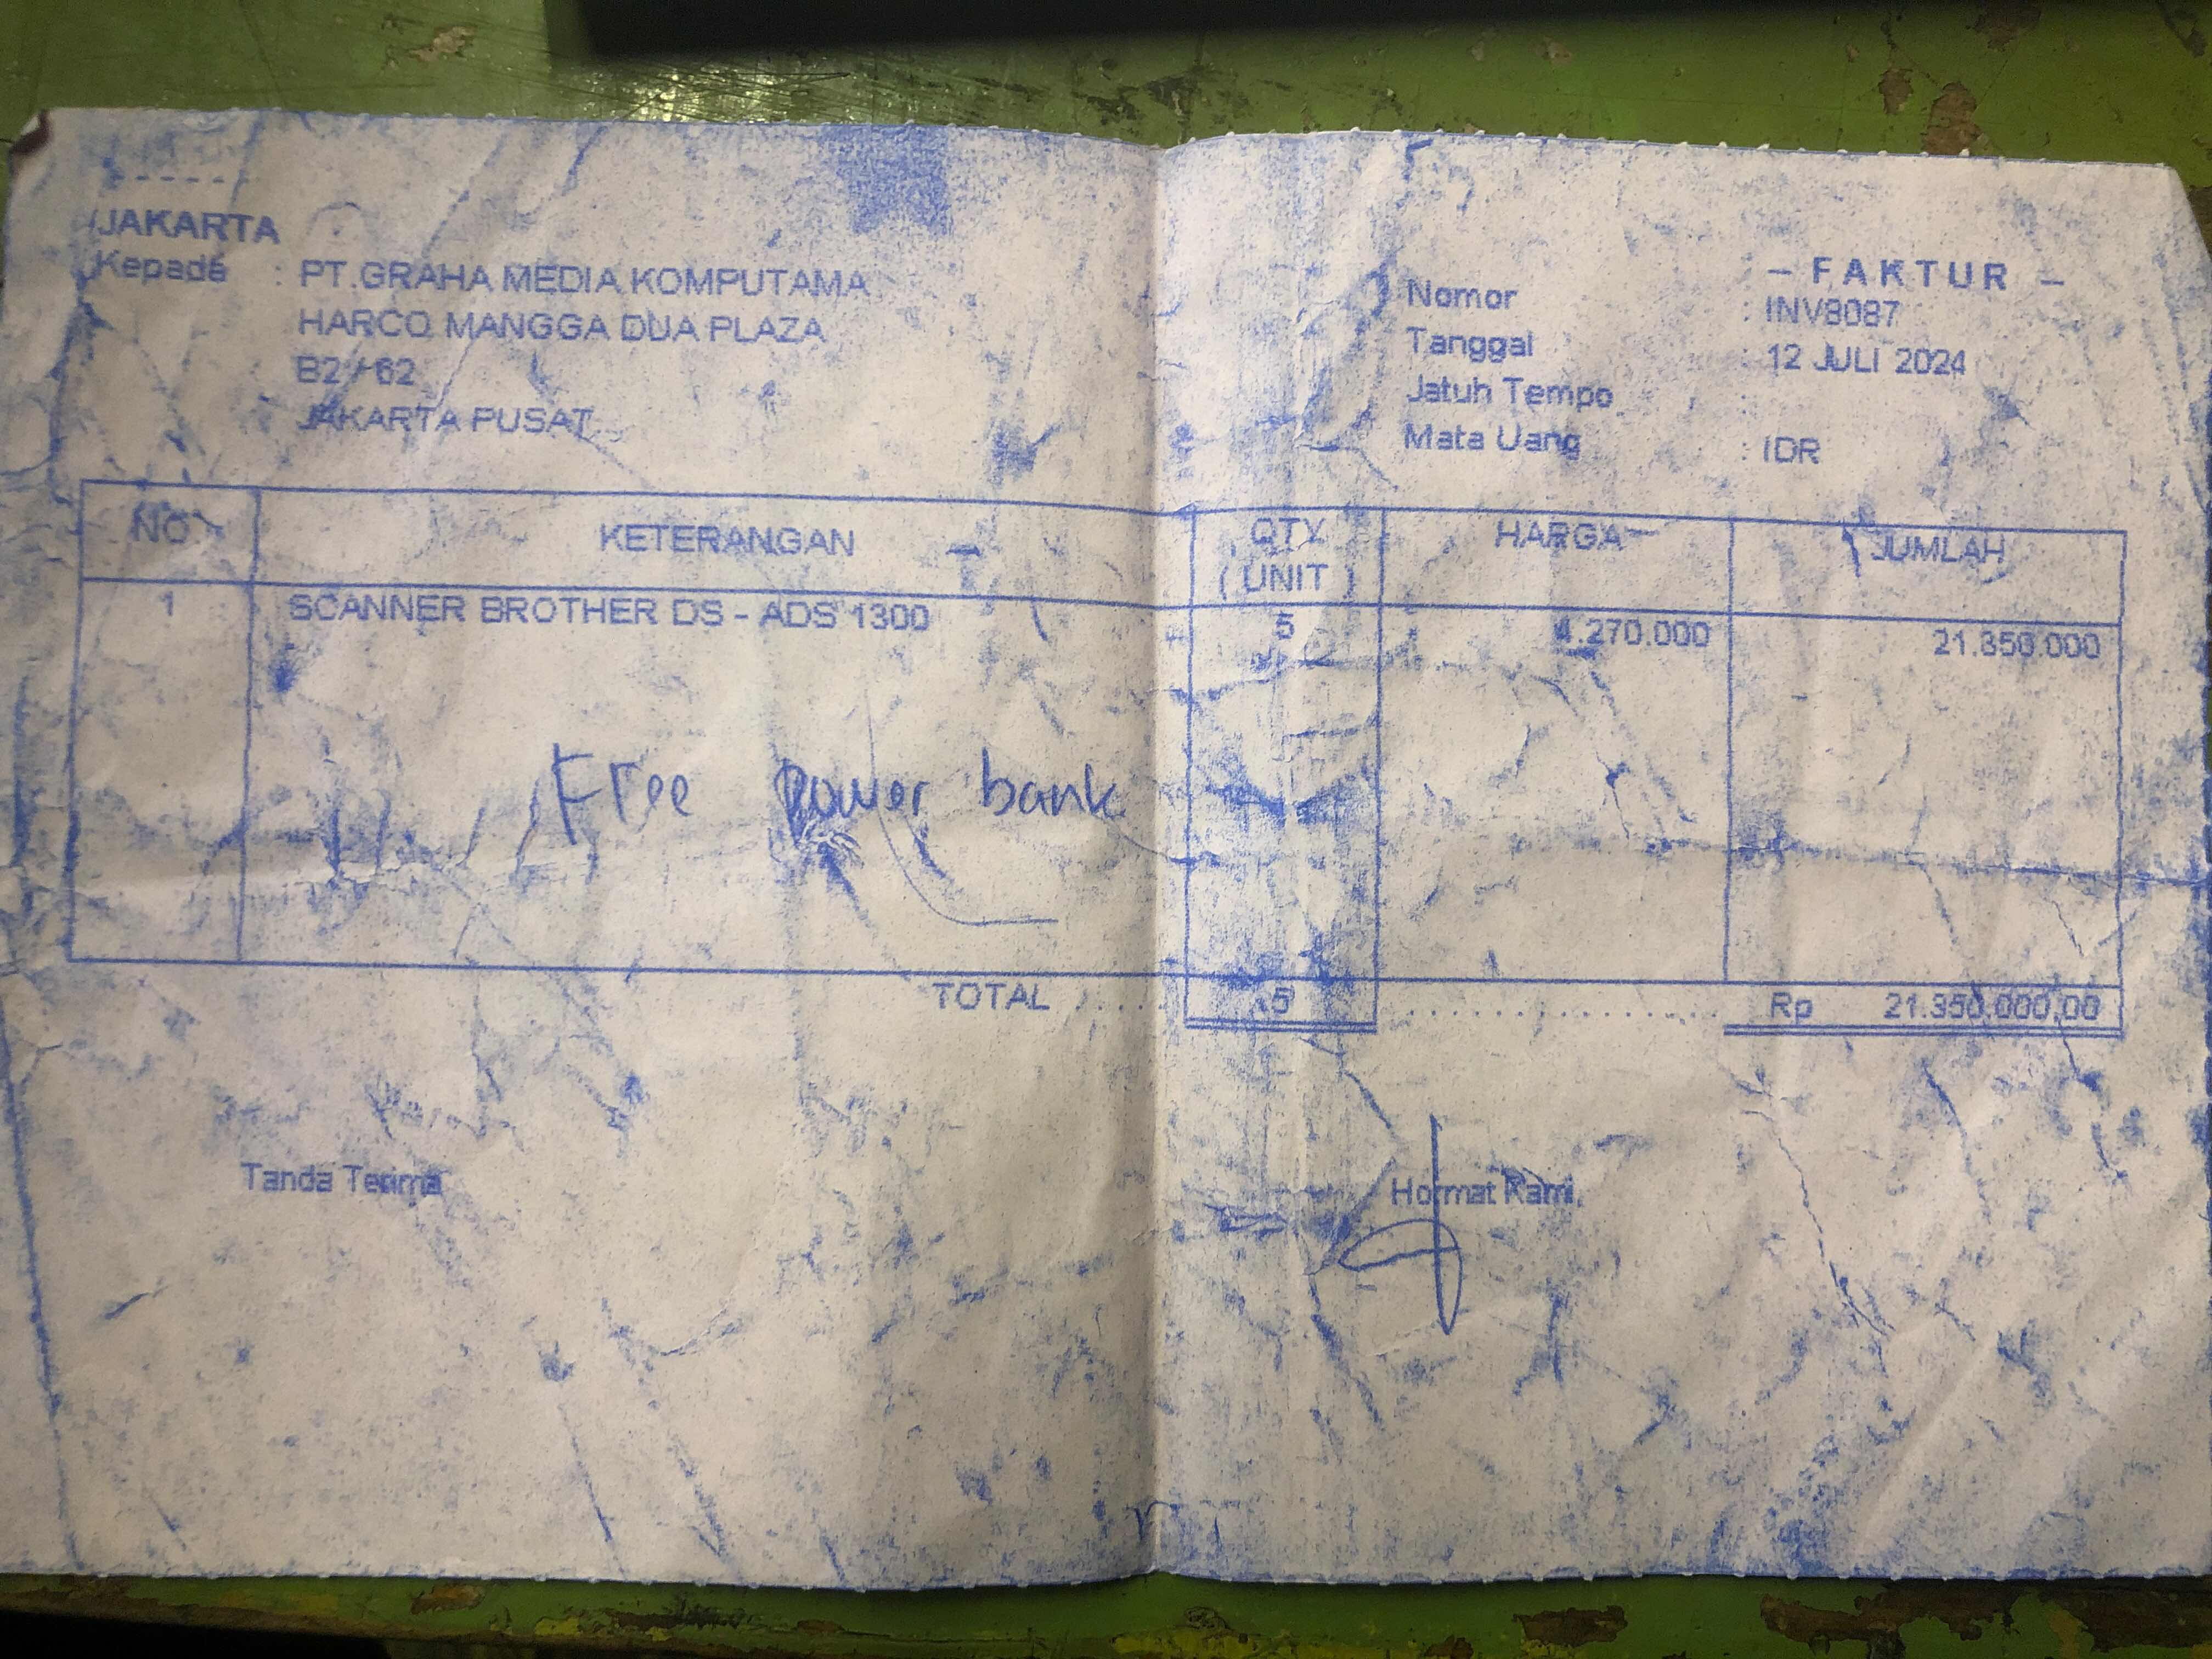 JAKARTA
Kepada : PT.GRAHA MEDIA KOMPUTAMA
HARCO MANGGA DUA PLAZA
B2 / 62
JAKARTA PUSAT
– FAKTUR –
Nomor : INV8087
Tanggal : 12 JULI 2024
Jatuh Tempo :
Mata Uang : IDR
NO KETERANGAN QTY ( UNIT ) HARGA JUMLAH
1 SCANNER BROTHER DS - ADS 1300 5 4.270.000 21.350.000
Free power bank
TOTAL ..... 5 ................. Rp 21.350.000,00
Tanda Terima
Hormat Kami,